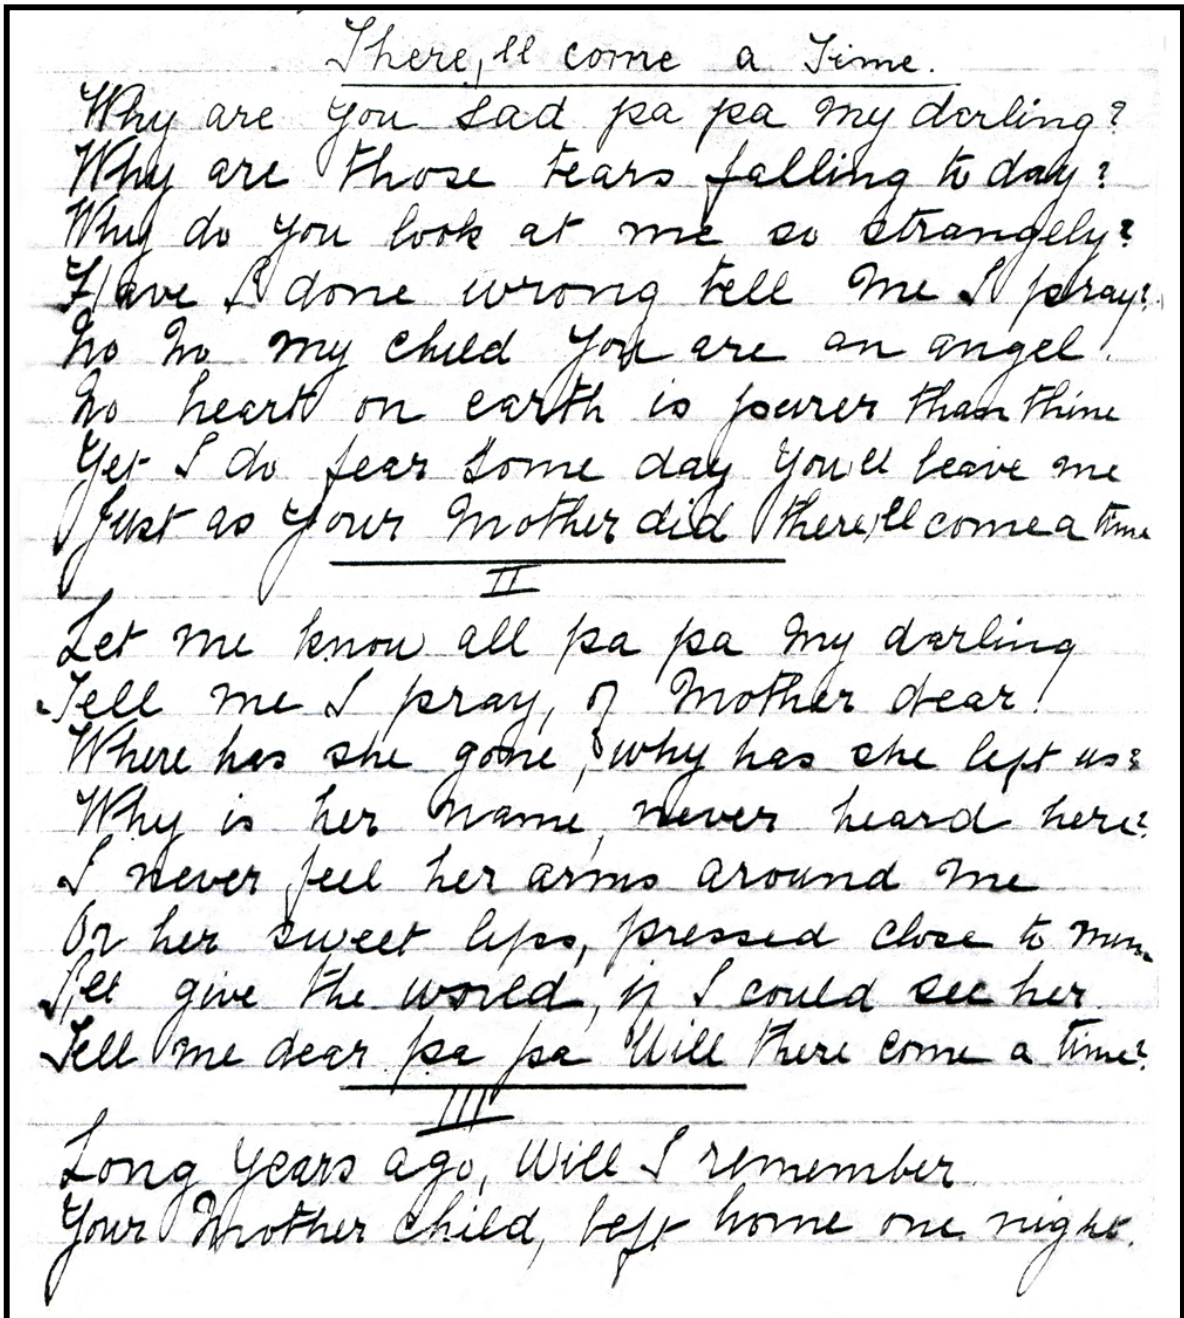 There,ll come a Time.
Why are you sad pa pa my darling?
Why are those tears falling to day?
Why do you look at me so strangely?
Have I done wrong tell me I pray?
No No my child you are an angel!
No heart on earth is purer than thine
Yet I do fear some day you'll leave me
Just as your Mother did there,ll come a time
II
Let me know all pa pa my darling
Tell me I pray, of Mother dear!
Where has she gone, & why has she left us?
Why is her name, never heard here?
I never feel her arms around me
Or her sweet lips, pressed close to mine
I'll give the world, if I could see her
Tell me dear pa pa Will there come a time?
III
Long years ago, Will I remember
Your Mother child, left home one night.